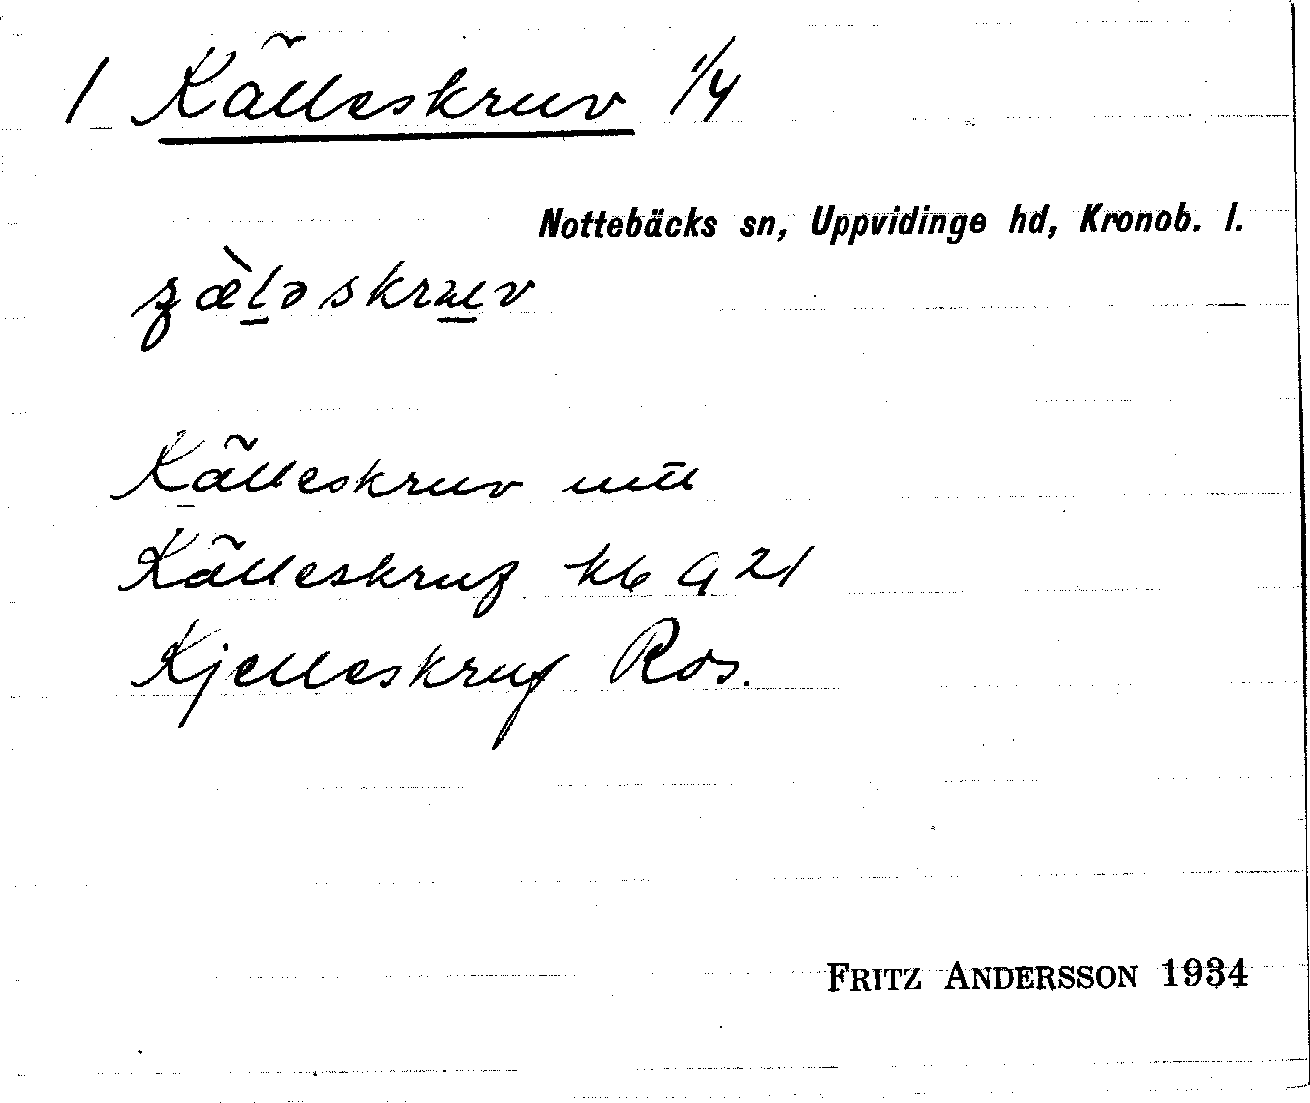 1 Källeskruv 1/4
Nottebäcks sn, Uppvidinge hd, Kronob. l.
Källeskruv
Källeskruf kb G 21
Kjelleskruf Ros.
FRITZ ANDERSSON 1934